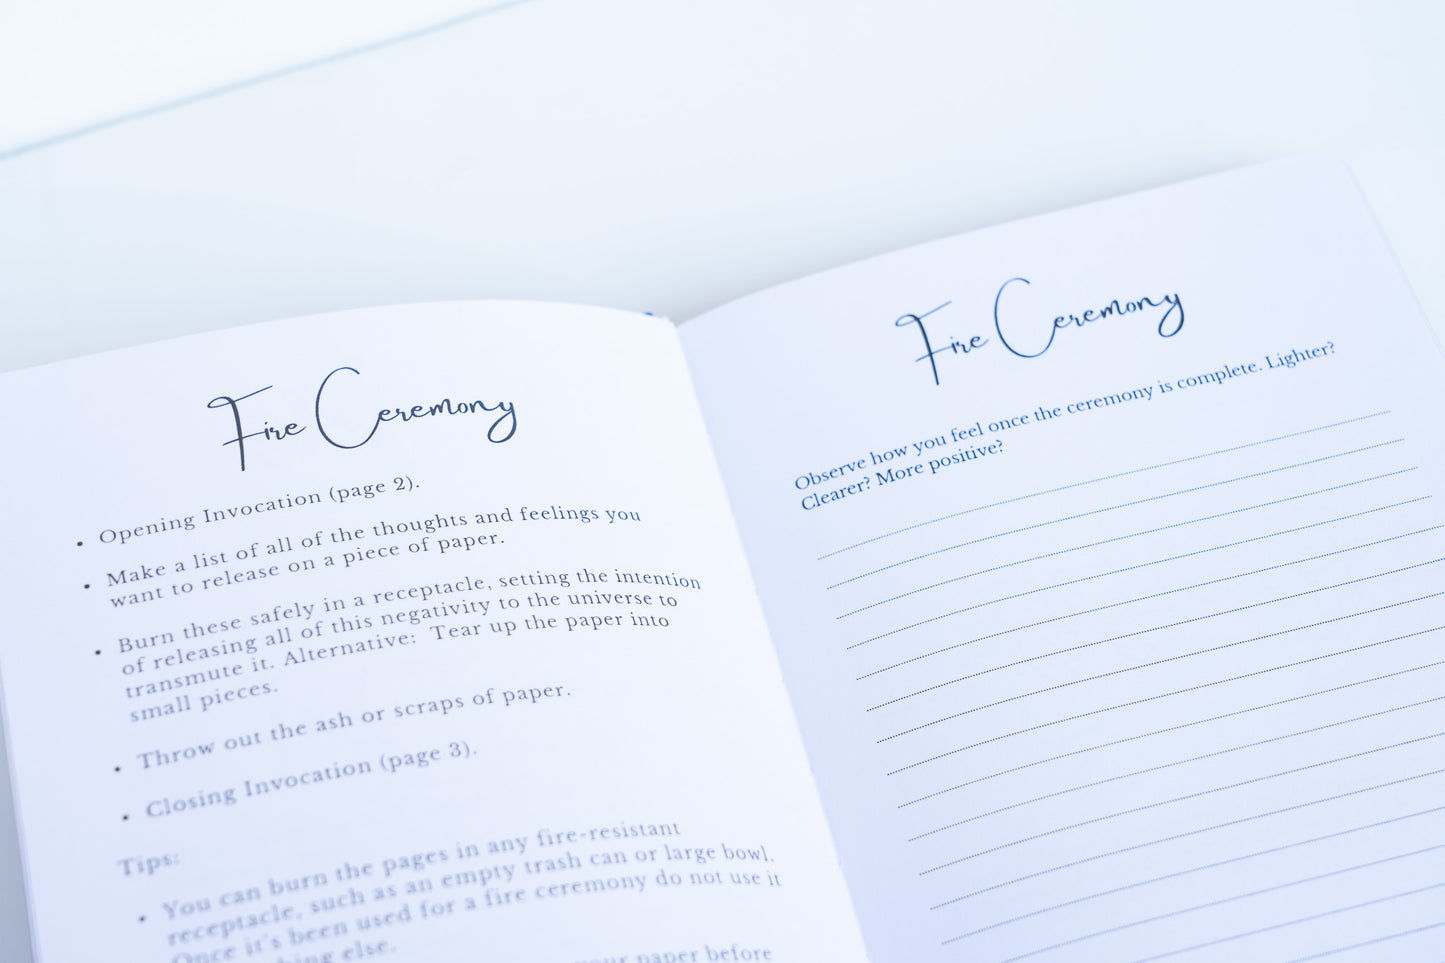 Fire Ceremony
• Opening Invocation (page 2).
• Make a list of all of the thoughts and feelings you
want to release on a piece of paper.
• Burn these safely in a receptacle, setting the intention
of releasing all of this negativity to the universe to
transmute it. Alternative:  Tear up the paper into
small pieces.
• Throw out the ash or scraps of paper.
• Closing Invocation (page 3).
Tips:
• You can burn the pages in any fire-resistant
receptacle, such as an empty trash can or large bowl.
Once it's been used for a fire ceremony do not use it
else.
your paper before
Fire Ceremony
Observe how you feel once the ceremony is complete. Lighter?
Clearer? More positive?